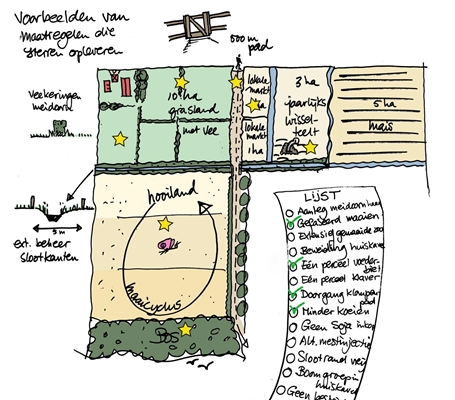 Voorbeelden van
maatregelen die
sterren opleveren
500 m
pad
Veekeringen
meidoorn
10 ha
grasland
met vee
lokale
markt
1 ha
lokale
markt
1 ha
3 ha
jaarlijks
wissel-
teelt
5 ha
mais
5 m
ext. beheer
slootkanten
hooiland
maaicyclus
Bos
LIJST
Aanleg meidoorn
Gefaseerd maaien
Extensief gemaaide
Beweiding huiskavel
Eén perceel voeder-
biet
Eén perceel klaver
Doorgang klompen
pad
Minder koeien
Geen Soja
Alt. mestinjectie
Slootrand
Boomgroep in
huiskavel
Geen